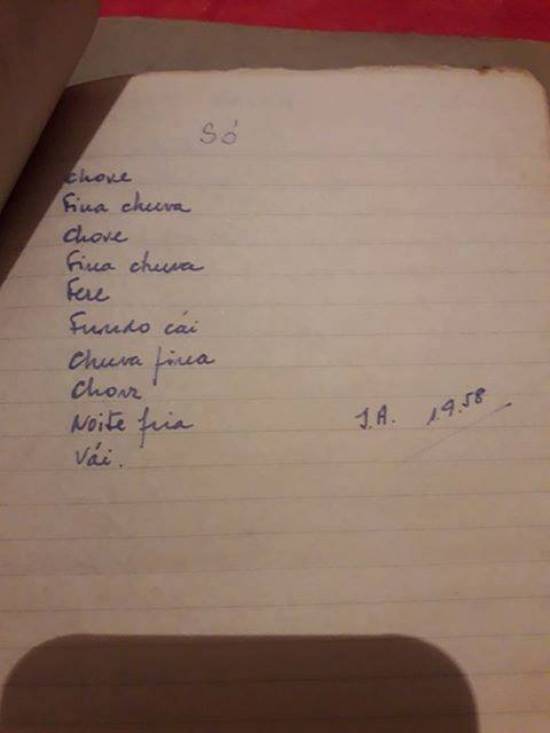 Só
Chove
Fina chuva
Chove
Fina chuva
Fere
Fundo cái
Chuva fina
Chove
Noite fria J.A. 19.58
Vái.